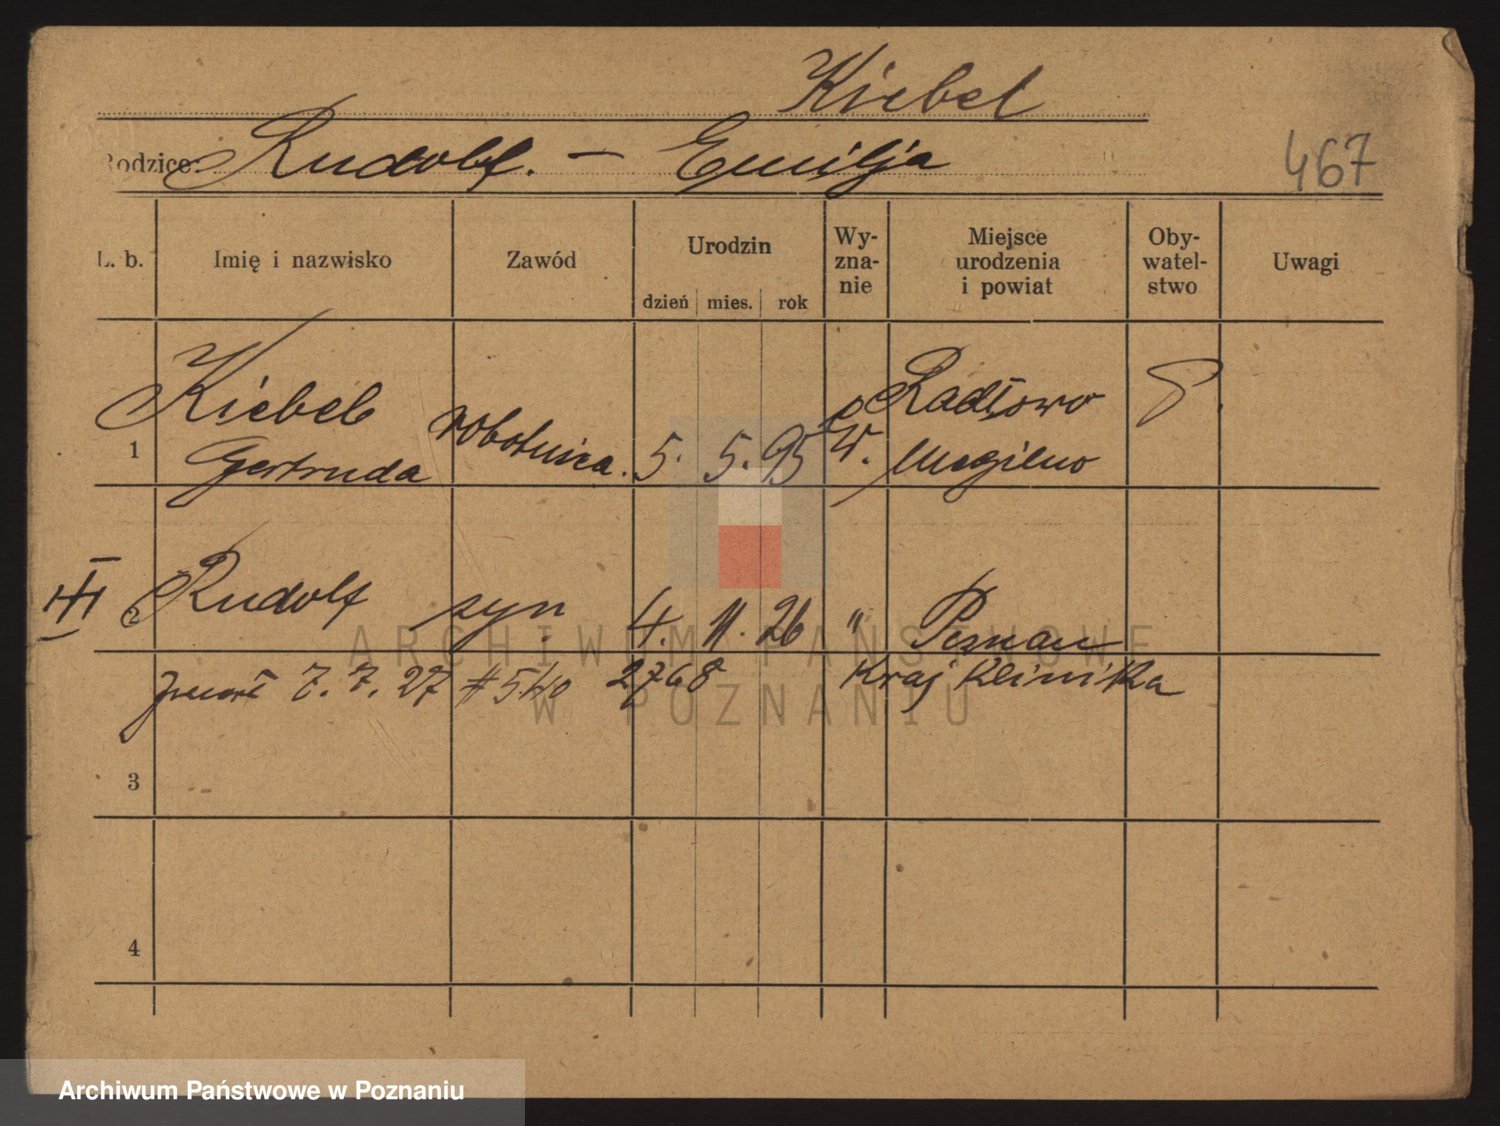 Kiebel
Rodzice: Rudolf. — Emilja
467
L. b. Imię i nazwisko Zawód Urodzin dzień mies. rok Wy-zna-nie Miejsce urodzenia i powiat Oby-watel-stwo Uwagi
1 Kiebel Gertruda robotnica. 5. 5. 95 Radłowo Mogilno P.
III 2 Rudolf syn 4. 11. 26 " Poznań
7. 7. 27 2768 Kraj Klinika
3
4
ARCHIWUM PAŃSTWOWE
W POZNANIU
Archiwum Państwowe w Poznaniu